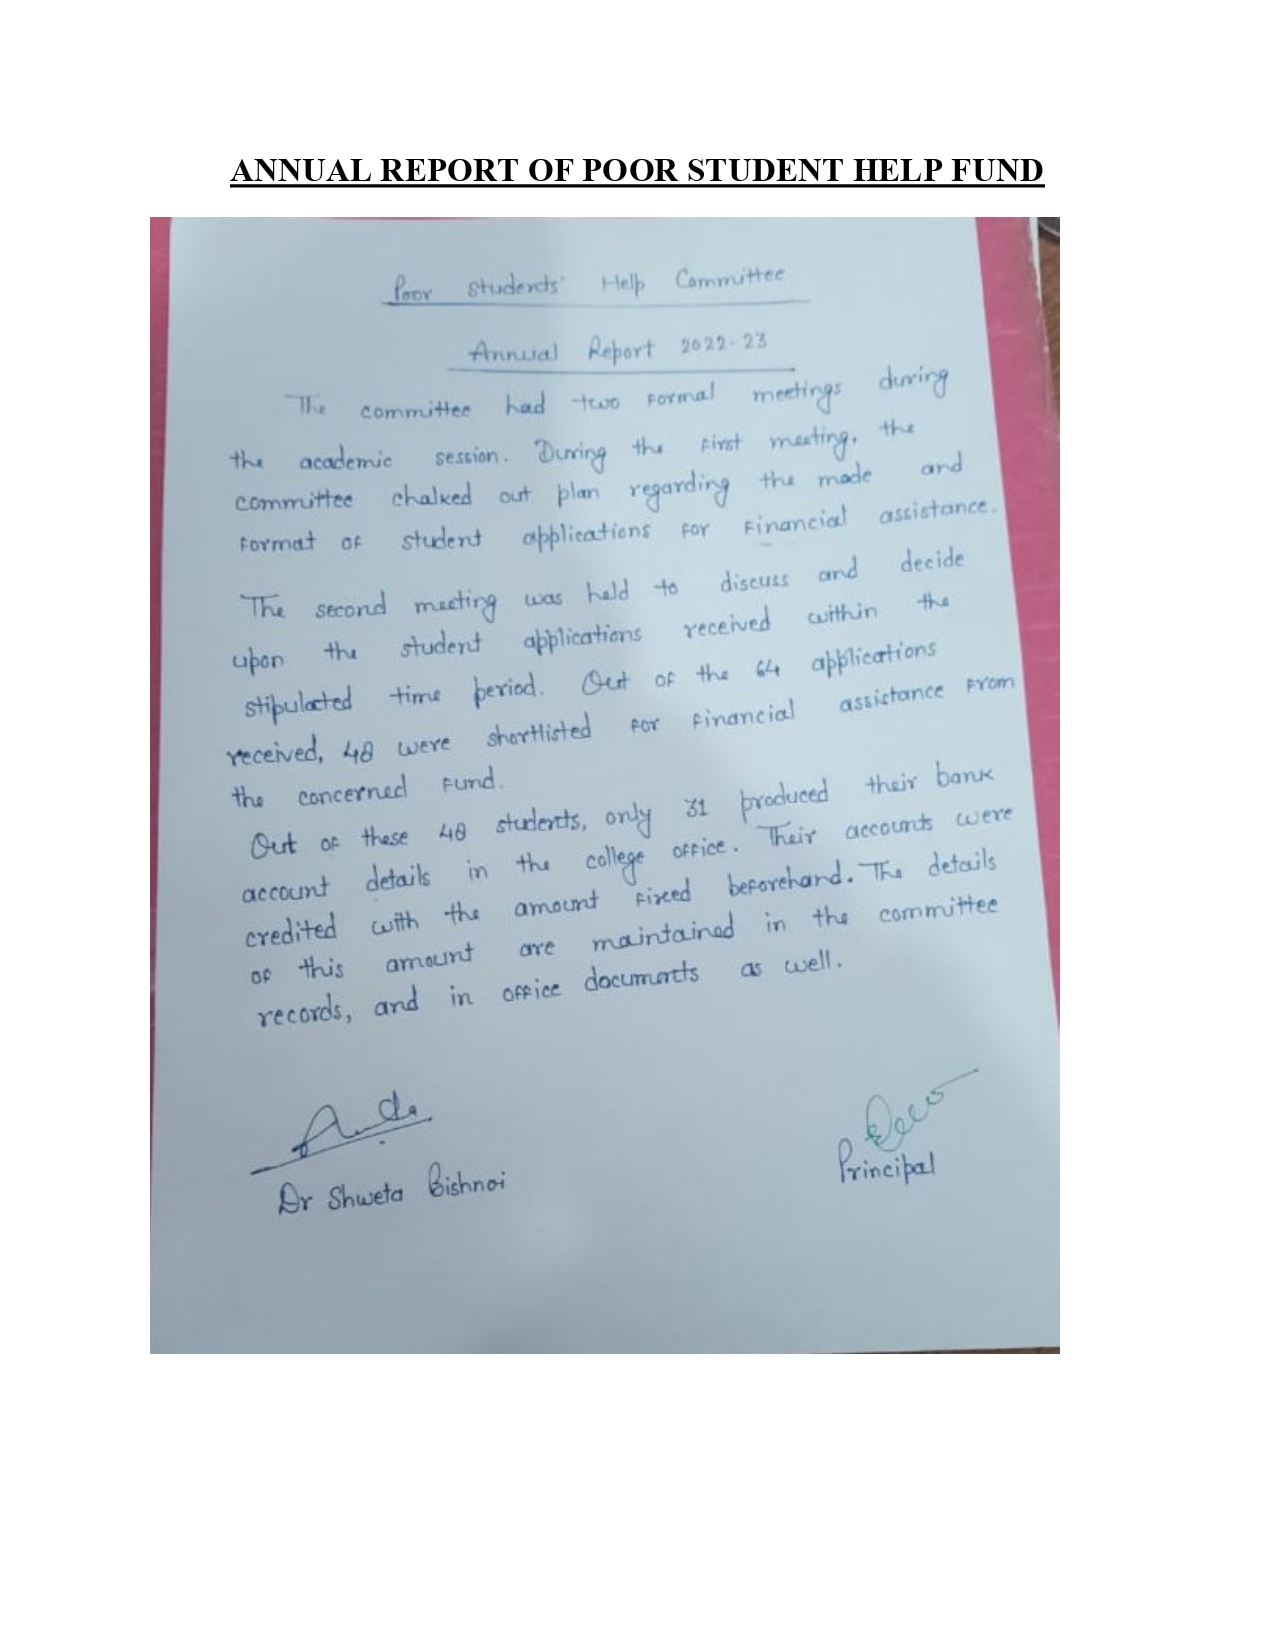 ANNUAL REPORT OF POOR STUDENT HELP FUND
Poor Students' Help Committee
Annual Report 2022-23
The committee had two formal meetings during
the academic session. During the first meeting, the
committee chalked out plan regarding the mode and
format of student applications for financial assistance.
The second meeting was held to discuss and decide
upon the student applications received within the
stipulated time period. Out of the 64 applications
received, 48 were shortlisted for financial assistance from
the concerned fund.
Out of these 48 students, only 31 produced their bank
account details in the college office. Their accounts were
credited with the amount fixed beforehand. The details
of this amount are maintained in the committee
records, and in office documents as well.
Dr Shweta Bishnoi
Principal